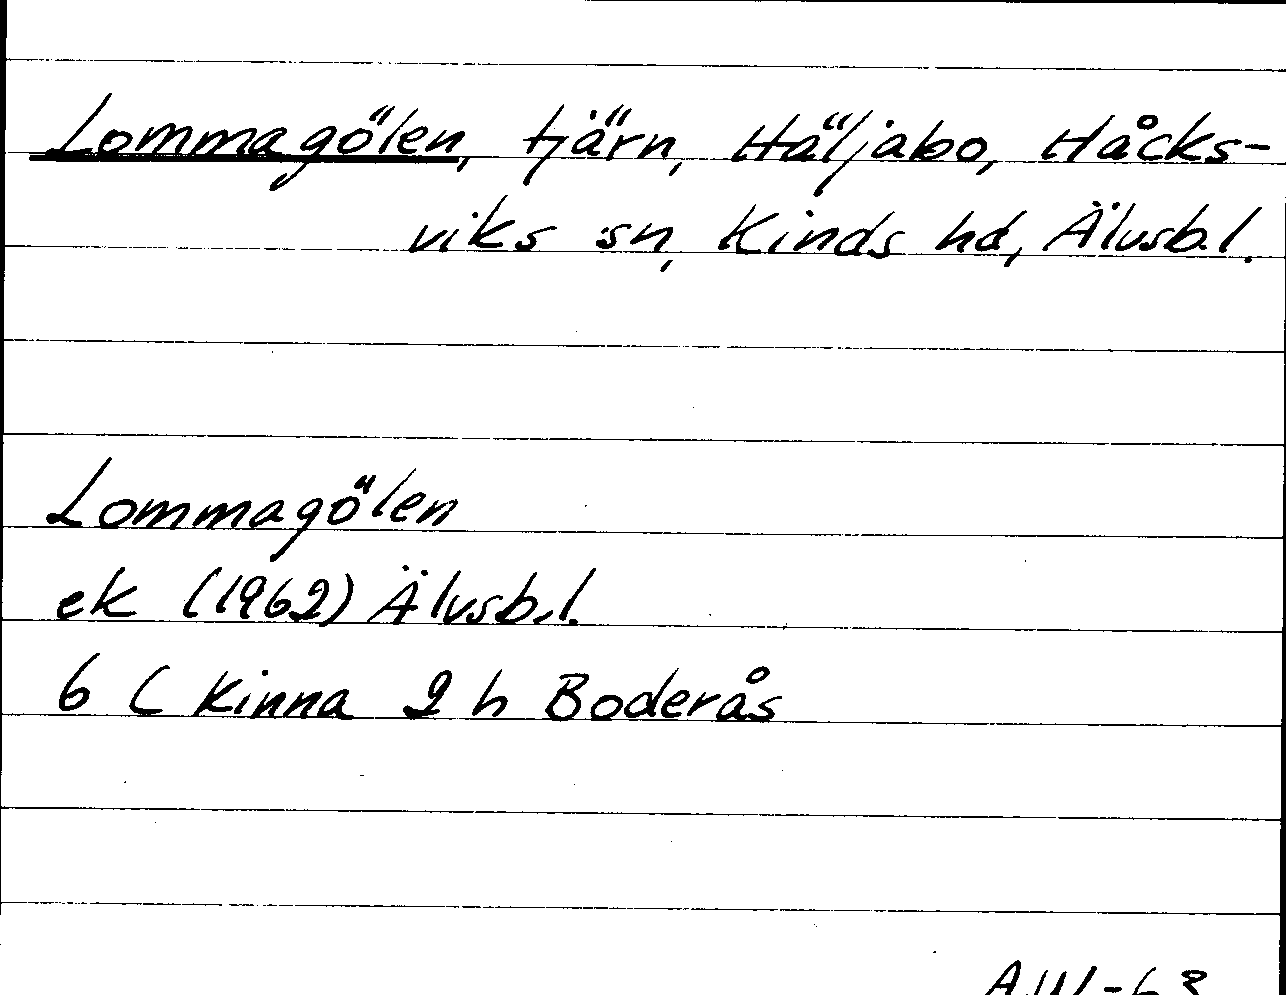 Lommagölen, tjärn, Häljabo, Håcks-
viks sn, Kinds hd, Älvsb.l.
Lommagölen
ek (1962) Älvsb.l.
6 C Kinna 2 h Boderås